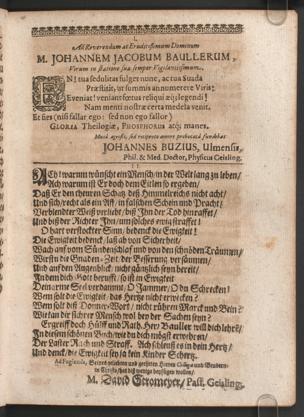 I.
Ad Reverendum at Eruditissimum Dominum
M. JOHANNEM JACOBUM BAULLERUM,
Virum in statione sua semper Vigilantissimum.
EN! tua sedulitas fulget nunc, ac tua Suada
Præstitit, ut summis annumerere Viris;
Eveniat! veniant fœtus reliqui ejus legendi!
Nam menti nostræ certa medela venit.
Et fies (nisi fallar ego: sed non ego fallor)
GLORIA Theilogiæ, PHOSPHORUS atq; manes.
JOHANNES BUZIUS, Ulmensis,
Phil. & Med. Doctor, Physicus Geisling.
II.
Ach! warum wünscht ein Mensch/ in der Welt lang zu leben/
Ach warum ist Er doch dem Eitlen so ergeben/
Daß Er den theuren Schatz deß Himmelreichs nicht acht/
Und sich/recht als ein Aff/ in falschen Schein und Pracht/
Verblendter Weiß verliebt/ biß Ihn der Tod hinraffet/
Und biß der Richter Ihn/ um solches ewig straffet!
O hart verstockter Sinn/ bedenck die Ewigkeit!
Die Ewigkeit bedenck/ laß ab von Sicherheit/
Wach auf vom Sündenschlaf und von den schnöden Träumen/
Wirst du die Gnaden-Zeit/ der Besserung versäumen/
Und auf den Augenblick/ nicht gäntzlich seyn bereit/
In dem dich Gott berufft/ so ist in Ewigkeit
Dein arme Seel verdammt/ O Jammer/ O du Schrecken!
Wem solt die Ewigkeit/ das Hertze nicht erwecken?
Wem solt diß Donner-Wort/ nicht rühren Marck und Bein?
Wie kan dir sichrer Mensch wol bey der Sachen seyn?
Ergreiff doch Hülff und Rath/Herr Bauller will dich lehrē/
In diesem schönen Buch/ wie du dich könnst erwehren/
Der Laster Rach und Straff. Ach schleuß es in dein Hertz/
Und denck/ die Ewigkeit sey ja kein Kinder Schertz.
M. David Stromeyer/ Past. Geisling.